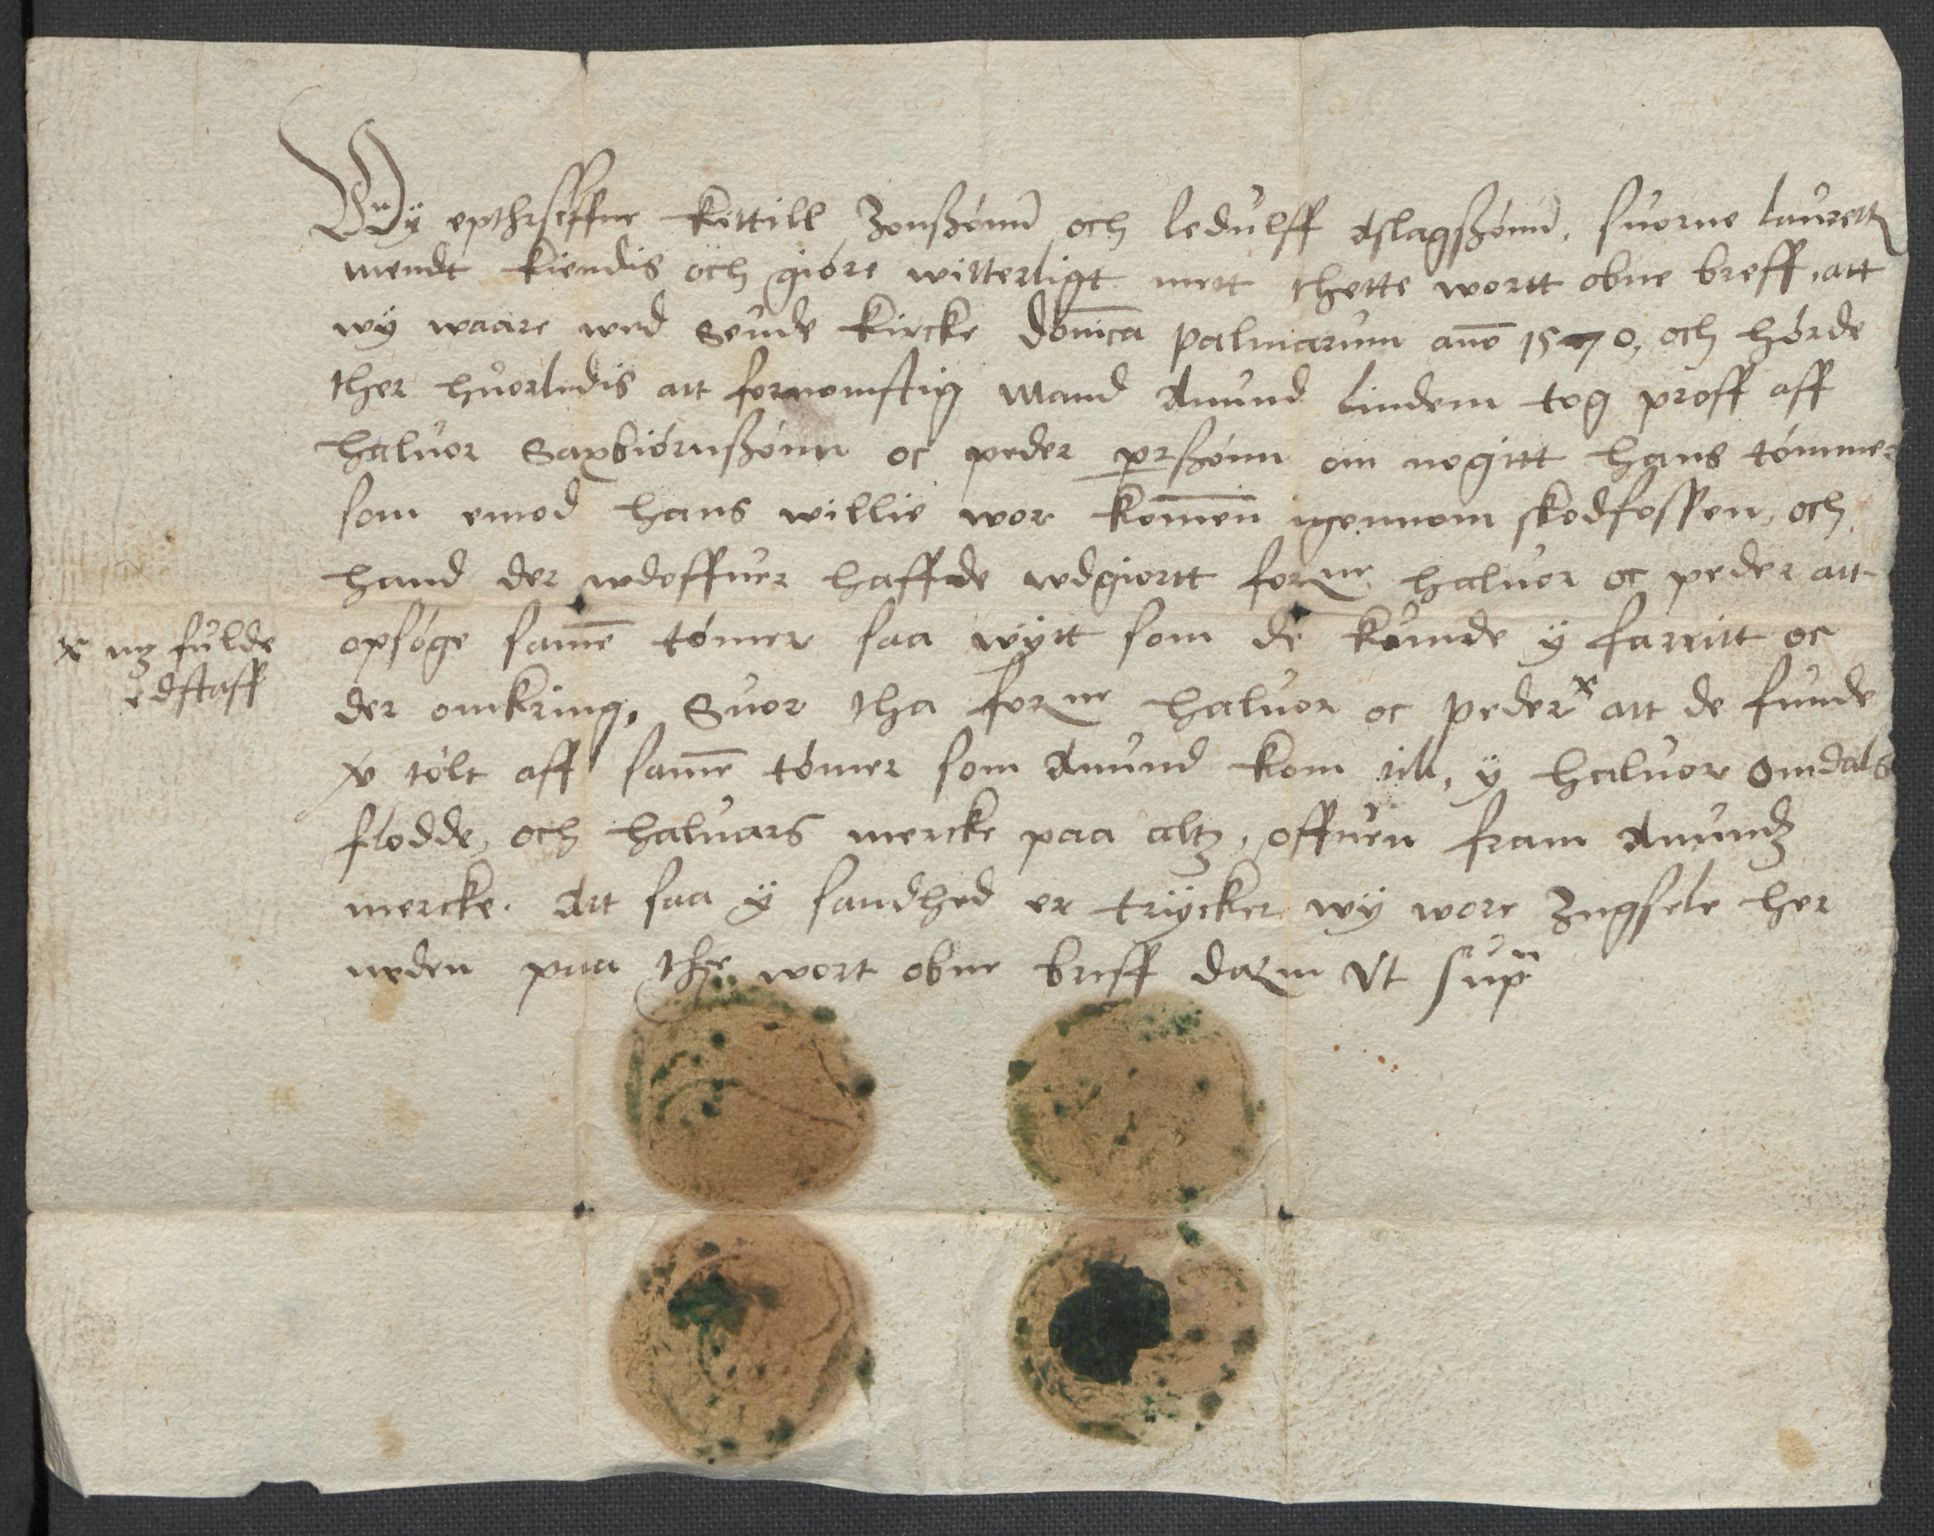 Wy epthrscffne Kittill Jonßønn och ledulff Aslagßønn, suorne laurett
mendt kiendis och giøre witterligt mett thette wortt obne breff, att
wy waare wed Seude kircke dominica palmarum anno 1570, och hørde
ther huorledis att fornomftig mand Anund Lindem tog proff aff
haluor Saxbiørnßønn oc peder perßønn om nogitt hans tømmer
som emod hans willie wor kommen igennom skodfossen, och
hand der wdoffuer haffde wdgiortt forne haluor oc peder att
opsøge samme tømer saa wytt som de kunde y farritt oc
x mz fulde
edstaff
der omkring, Suor tha forne haluor oc peder x att de funde
x tølt aff samme tømer som Anund kom till, y haluor Omdals
flodde, och haluars mercke paa altz, offuen fram Anundz
mercke. Att saa y sandhed er trycker wy wore Zngsele her
neden paa the wort obne breff datum Vt supra